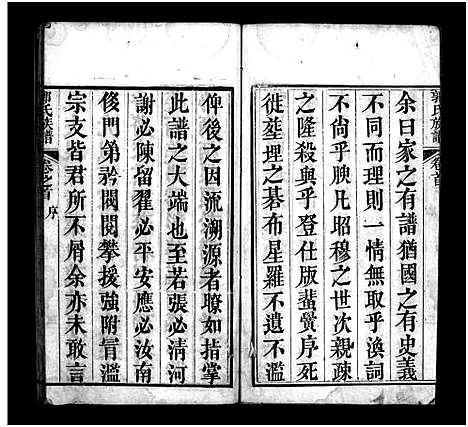 郭氏族譜 卷首
余曰家之有譜猶國之有史義
不同而理則一情無取乎渙詞
不尚乎腴凡昭穆之世次親疎
之隆殺與乎登仕版蜚黌序死
徙塟埋之碁布星羅不遺不濫
俾後之因流溯源者瞭如指掌
此譜之大端也至若張必清河
謝必陳留翟必平安應必汝南
倭門第矜閥閱攀援強附冒濫
宗支皆君所不屑余亦未敢言
郭氏族譜 卷之首 序